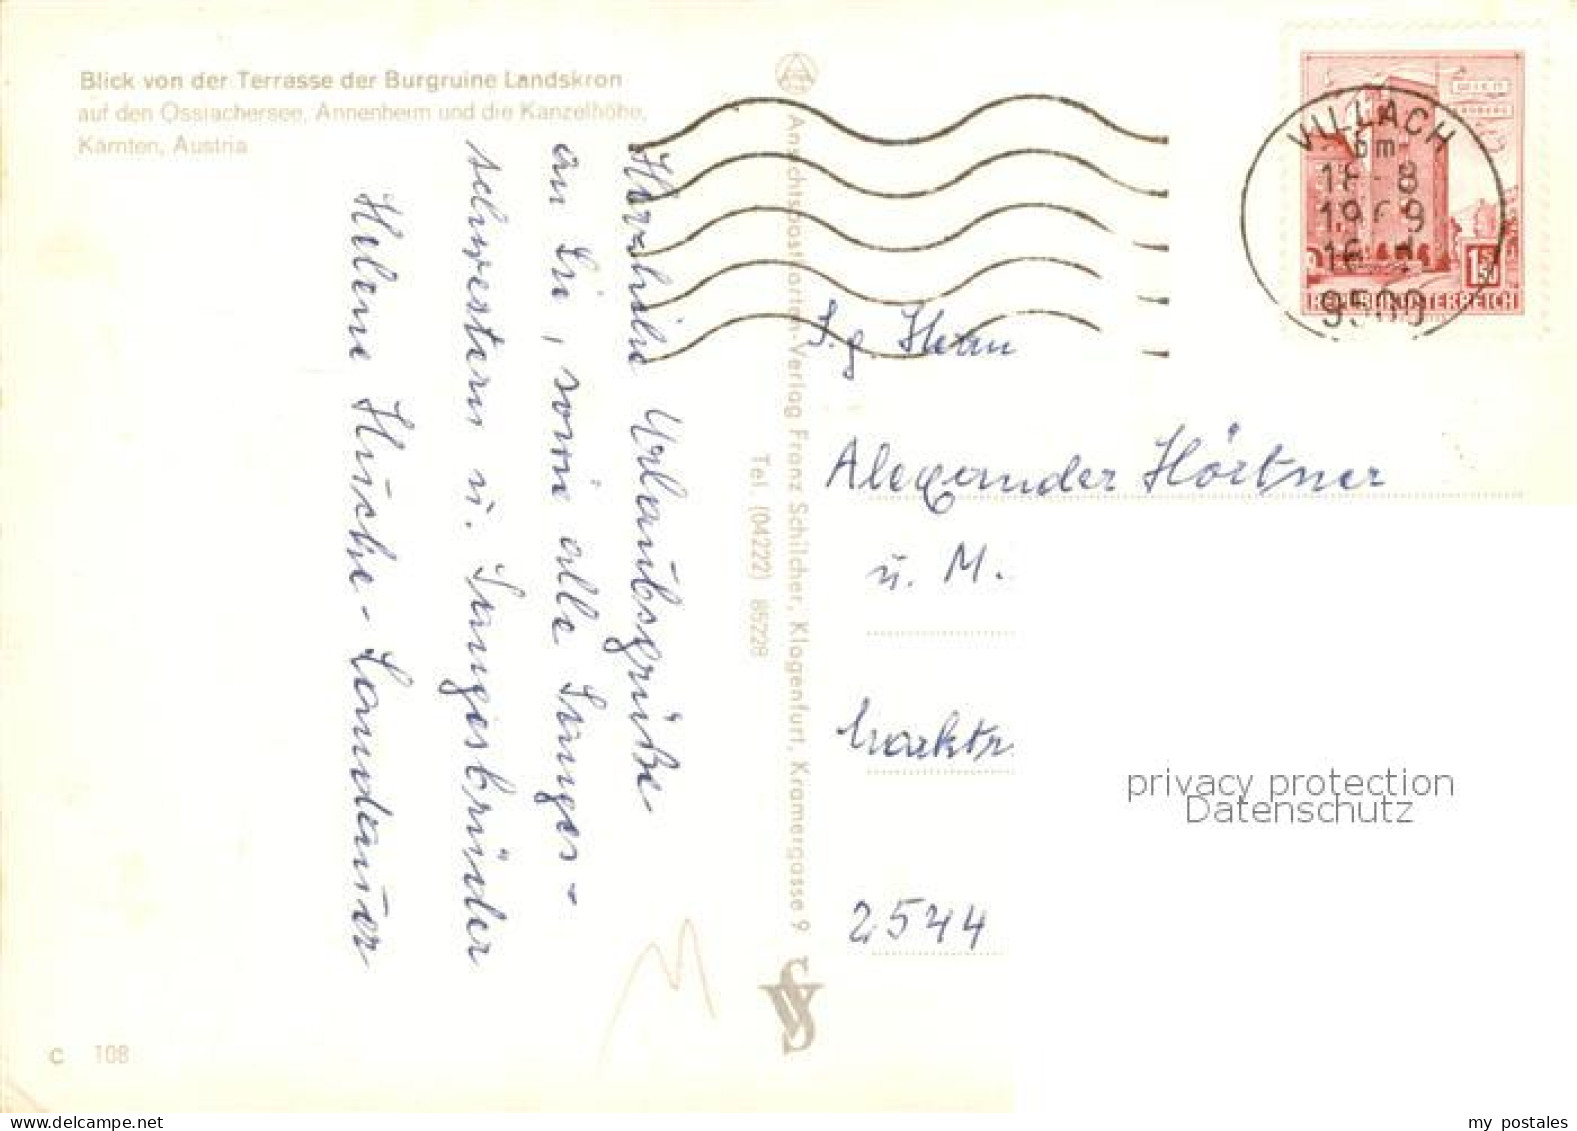 Blick von der Terrasse der Burgruine Landskron
auf den Ossiachersee, Annenheim und die Kanzelhöhe,
Kärnten, Austria
Herzliche Urlaubsgrüße
an Sie, sowie alle Sanges-
schwestern u. Sangesbrüder
Helene Husche-Landauer
Ansichtspostkarten-Verlag Franz Schilcher, Klagenfurt, Kramergasse 9
Tel. (04222) 85228
VILLACH
bm
18-8
1969
9500
1.50
REPUBLIK ÖSTERREICH
S.g. Herrn
Alexander Hörtner
u. M.
Marktr.
2544
privacy protection
Datenschutz
C 108
my postales